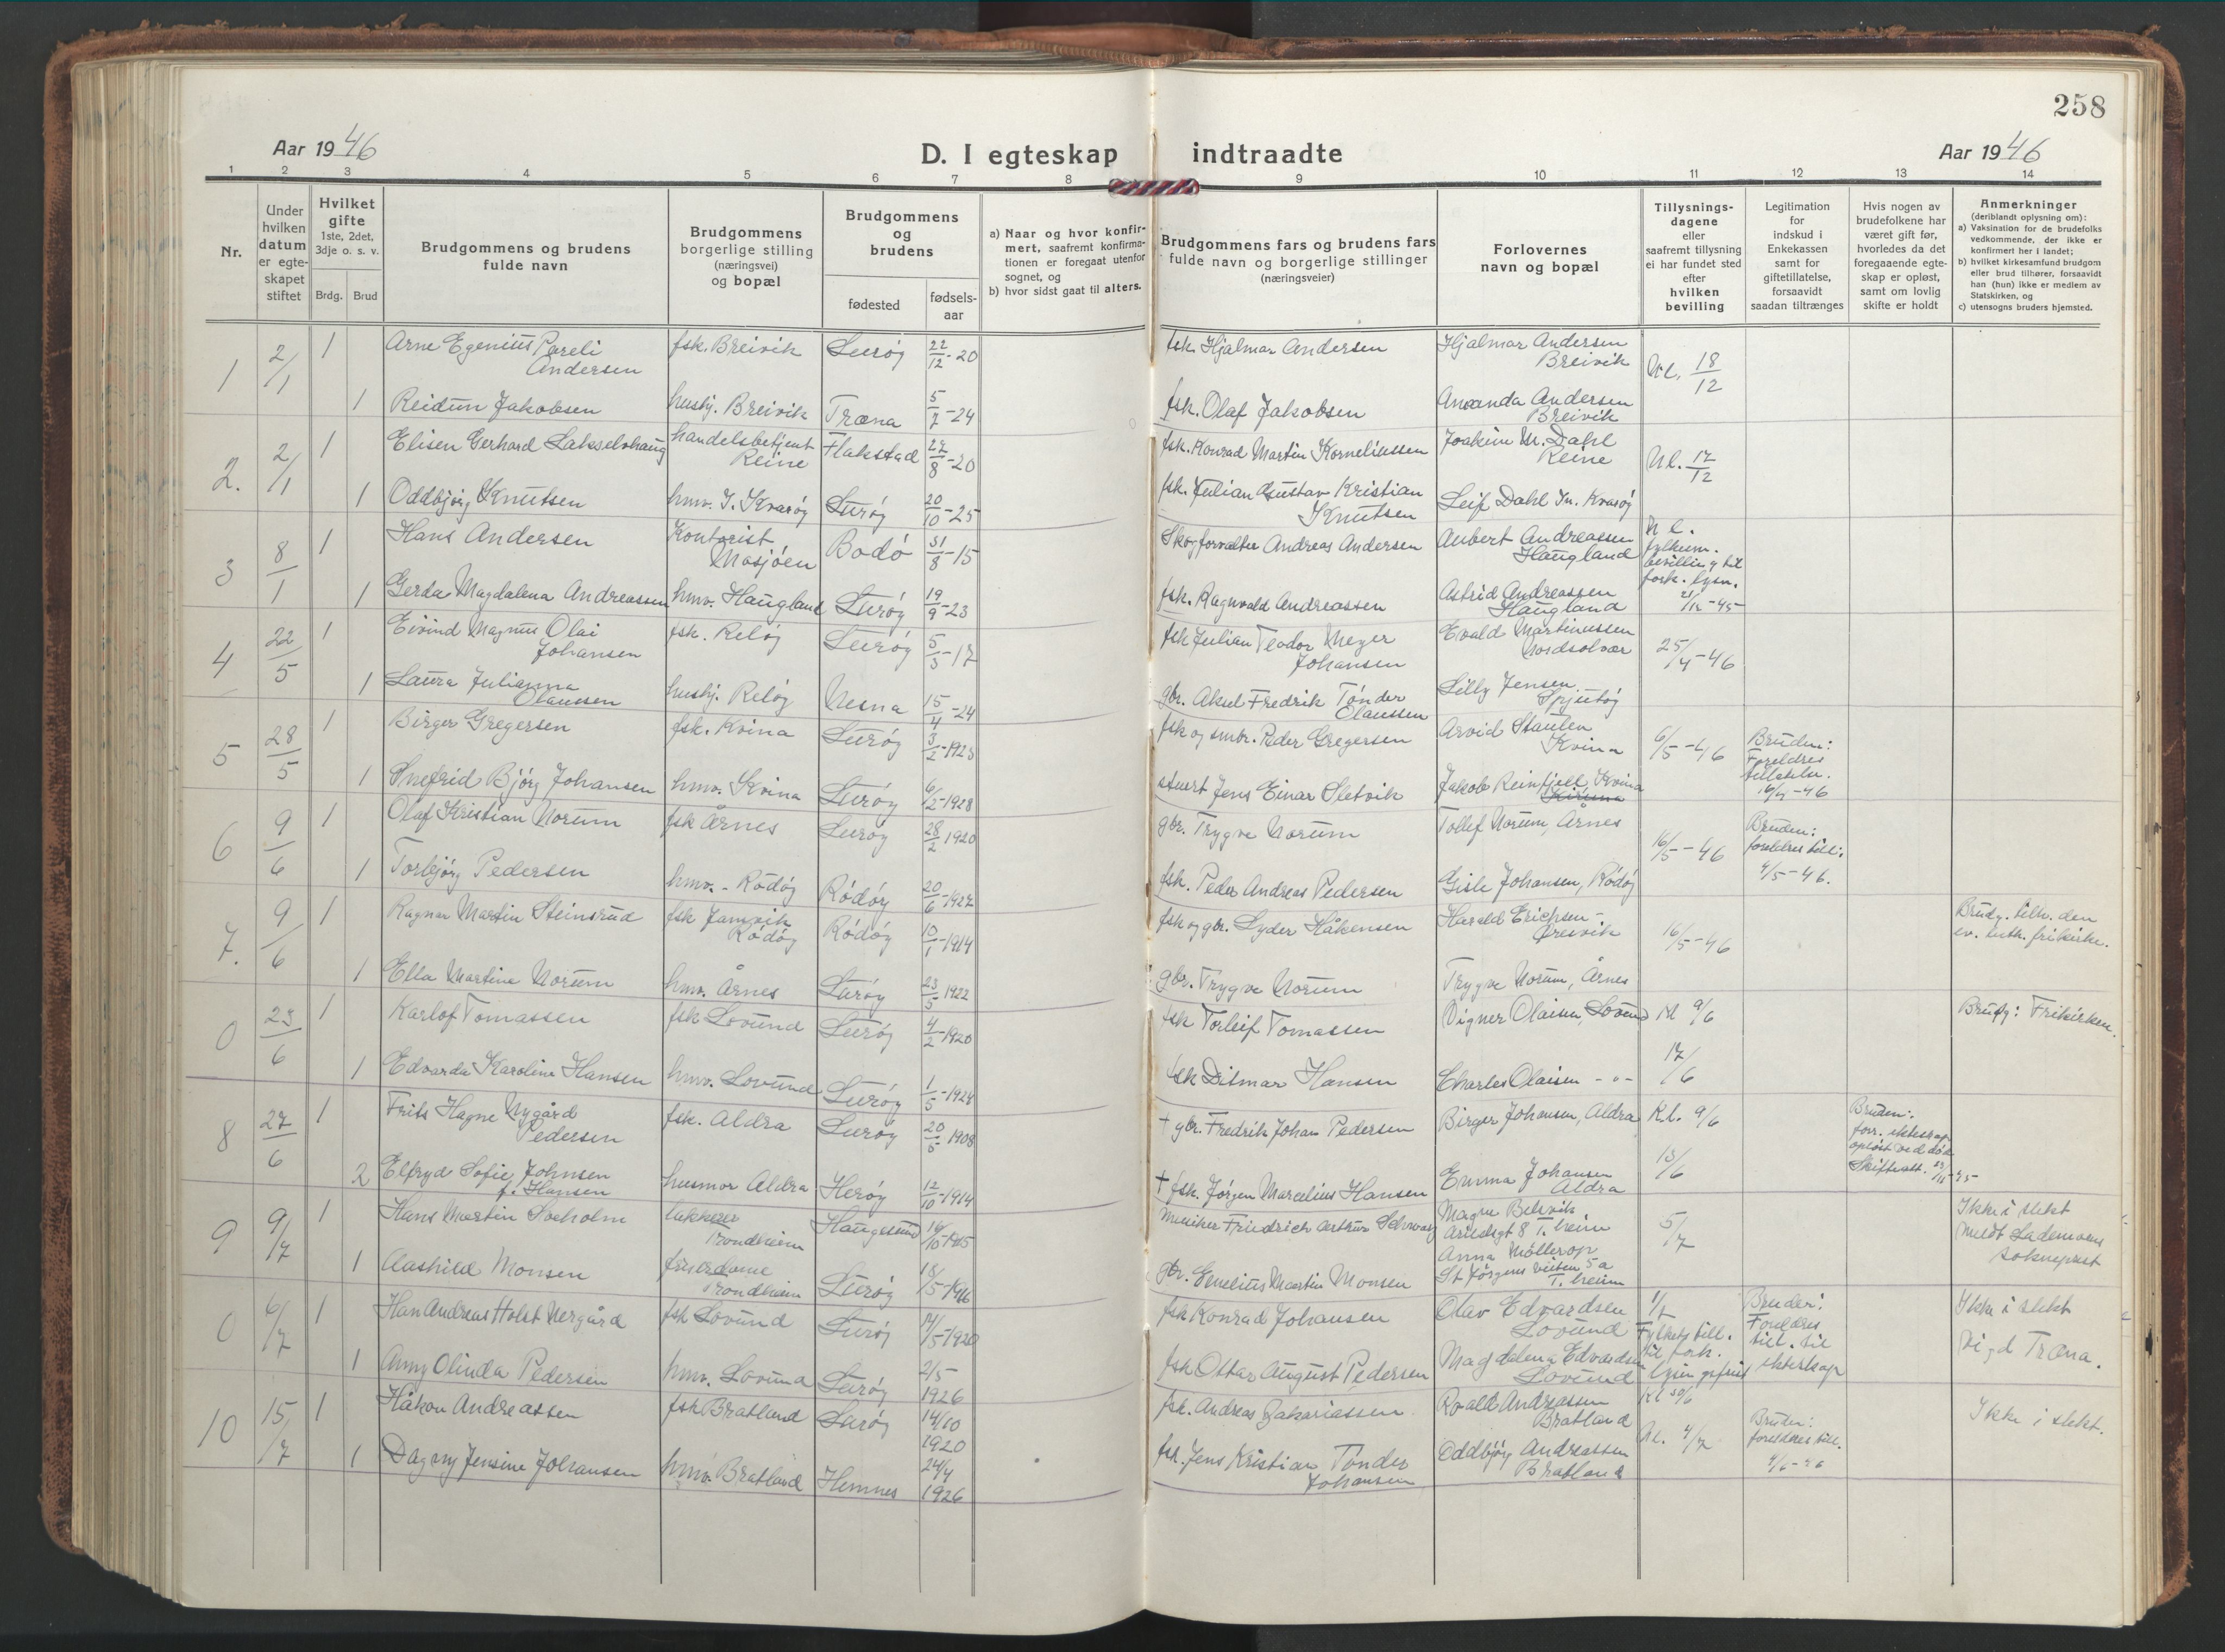 258
Aar 1946
D. I egteskap indtraadte
Aar 1946
1 2 3 4 5 6 7 8 9 10 11 12 13 14
Nr.
Under
hvilken
datum
er egte-
skapet
stiftet
Hvilket
gifte
1ste, 2det,
3dje o. s. v.
Brdg. Brud
Brudgommens og brudens
fulde navn
Brudgommens
borgerlige stilling
(næringsvei)
og bopæl
Brudgommens
og
brudens
fødested
fødsels-
aar
a) Naar og hvor konfir-
mert, saafremt konfirma-
tionen er foregaat utenfor
sognet, og
b) hvor sidst gaat til alters.
Brudgommens fars og brudens fars
fulde navn og borgerlige stillinger
(næringsveier)
Forlovernes
navn og bopæl
Tillysnings-
dagene
eller
saafremt tillysning
ei har fundet sted
efter
hvilken
bevilling
Legitimation
for
indskud i
Enkekassen
samt for
giftetillatelse,
forsaavidt
saadan tiltrænges
Hvis nogen av
brudefolkene har
været gift før,
hvorledes da det
foregaaende egte-
skap er opløst,
samt om lovlig
skifte er holdt
Anmerkninger
(deriblandt oplysning om):
a) Vaksination for de brudefolks
vedkommende, der ikke er
konfirmert her i landet;
b) hvilket kirkesamfund brudgom
eller brud tilhører, forsaavidt
han (hun) ikke er medlem av
Statskirken, og
c) utensogns bruders hjemsted.
1 2/1 1 Arne Egenius Pareli
Andersen fsk. Breivik Lurøy 22/12-20 fsk. Hjalmar Andersen Hjalmar Andersen
Breivik Kl. 18/12
1 Reidun Jakobsen hushj. Breivik Træna 5/7-24 fsk. Olaf Jakobsen Amanda Andersen
Breivik
2. 2/1 1 Elisen Gerhard Lakselvhaug handelsbetjent
Reine Flakstad 27/8-20 fsk. Konrad Martin Korneliussen Joakim M. Dahl
Reine Kl. 17/12
1 Oddbjørg Knutsen hmv. I. Kvarøy Lurøy 20/10-25 fsk. Julian Gustav Kristian
Knutsen Leif Dahl In. Kvarøy
3 8/1 1 Hans Andersen Kontorist
Mosjøen Bodø 31/8-15 Skogforvalter Andreas Andersen Aubert Andreassen
Haugland Kl.
fylkesm.
bevilling til
fork. lysn.
21/12-45
1 Gerda Magdalena Andreassen hmv. Haugland Lurøy 19/9-23 fsk. Ragnvald Andreassen Astrid Andreassen
Haugland
4 22/5 1 Eivind Magnus Olai
Johansen fsk. Reløy Lurøy 5/3-17 fsk Julian Teodor Meyer
Johansen Evald Martinussen
Nordsolvær 25/4-46
1 Laura Julianna
Olaussen hushj. Reløy Nesna 15/4-24 gbr. Aksel Fredrik Tønder
Olaussen Lilly Jensen
Spjutøy
5 28/5 1 Birger Gregersen fsk. Kvina Lurøy 3/2-1923 fsk og smbr. Peder Gregersen Arvid Staulen
Kvina 6/5-46 Bruden:
Foreldres
tillatelse.
16/4-46
1 Snefrid Bjørg Johansen hmv. Kvina Lurøy 6/12-1928 stuert Jens Einar Sletvik Jakob Reinfjell Kvina
6 9/6 1 Olaf Kristian Norum fsk Årnes Lurøy 28/2 1920 gbr. Trygve Norum Tollef Norum, Årnes 16/5-46 Bruden:
foreldres till:
4/5-46.
1 Torbjørg Pedersen hmv. - Rødøy Rødøy 20/6-1927 fsk. Peder Andreas Pedersen Gisle Johansen, Rødøy
7. 9/6 1 Ragnar Martin Steinsrud fsk Jamvik
Rødøy Rødøy 10/1-1914 fsk og gbr. Lyder Håkensen Harald Erichsen -
Øresvik 16/5-46 Brudg. tilh. den
ev. luth. frikirke.
1 Ella Martine Norum hmv. Årnes Lurøy 23/5 1922 gbr. Trygve Norum Trygve Norum, Årnes
0 23/6 1 Karlof Tomassen fsk Lovund Lurøy 4/2-1920 fsk Torleif Tomassen Vigner Olaisen, Lovund Kl 9/6 Brudg: Frikirken.
17/6
1 Edvarda Karoline Hansen hmv. Lovund Lurøy 1/5-1924 fsk Ditmar Hansen Charles Olaisen - " -
8 27/6 1 Frits Hagne Nygård
Pedersen fsk. Aldra Lurøy 20/5-1908 + gbr. Fredrik Johan Pedersen Birger Johansen, Aldra Kl. 9/6 Bruden:
forr. ekteskap
opløst ved død
Skifteatt.
13/6
2 Elfryd Sofie Johnsen
f. Hansen husmor Aldra Herøy 12/10-1914 + fsk. Jørgen Marcelius Hansen Emma Johansen
Aldra
9 9/7 1 Hans Martin Soeholm lakkerer
Trondheim Haugesund 16/10-1915 Musiker Friedrich Arthur Schwarz Magne Belsvik
8 T.heim 5/7 Ikke i slekt
Meldt Lademoens
sokneprest
1 Aashild Monsen friserdame
Trondheim Lurøy 18/5-1916 gbr. Emelius Martin Monsen Anna Møllerop
St Jørgens veiten 5a
T.heim
0 6/7 1 Han Andreas Holst Nergård fsk Lovund Lurøy 14/5-1920 fsk Konrad Johansen Olav Edvardsen
Lovund 1/7
Fylkets till.
til fork.
lysningsfrist Bruder:
Foreldres
till. til
ekteskap Ikke i slekt
Vigd Træna.
1 Anny Olinda Pedersen hmv. Lovund Lurøy 2/5
1926 fsk Ottar August Pedersen Magdalena Edvardsen
Lovund
10 15/7 1 Håkon Andreassen fsk Bratland Lurøy 14/10
1920 fsk. Andreas Zakariassen Roald Andreassen
Bratland Kl 30/6 Ikke i slekt.
1 Dagny Jensine Johansen hmv. Bratland Hemnes 24/4
1926 fsk. Jens Kristian Tønder
Johansen Oddbjørg Andreassen
Bratland Kl. 4/7 Bruder:
foreldres till.
4/6-46